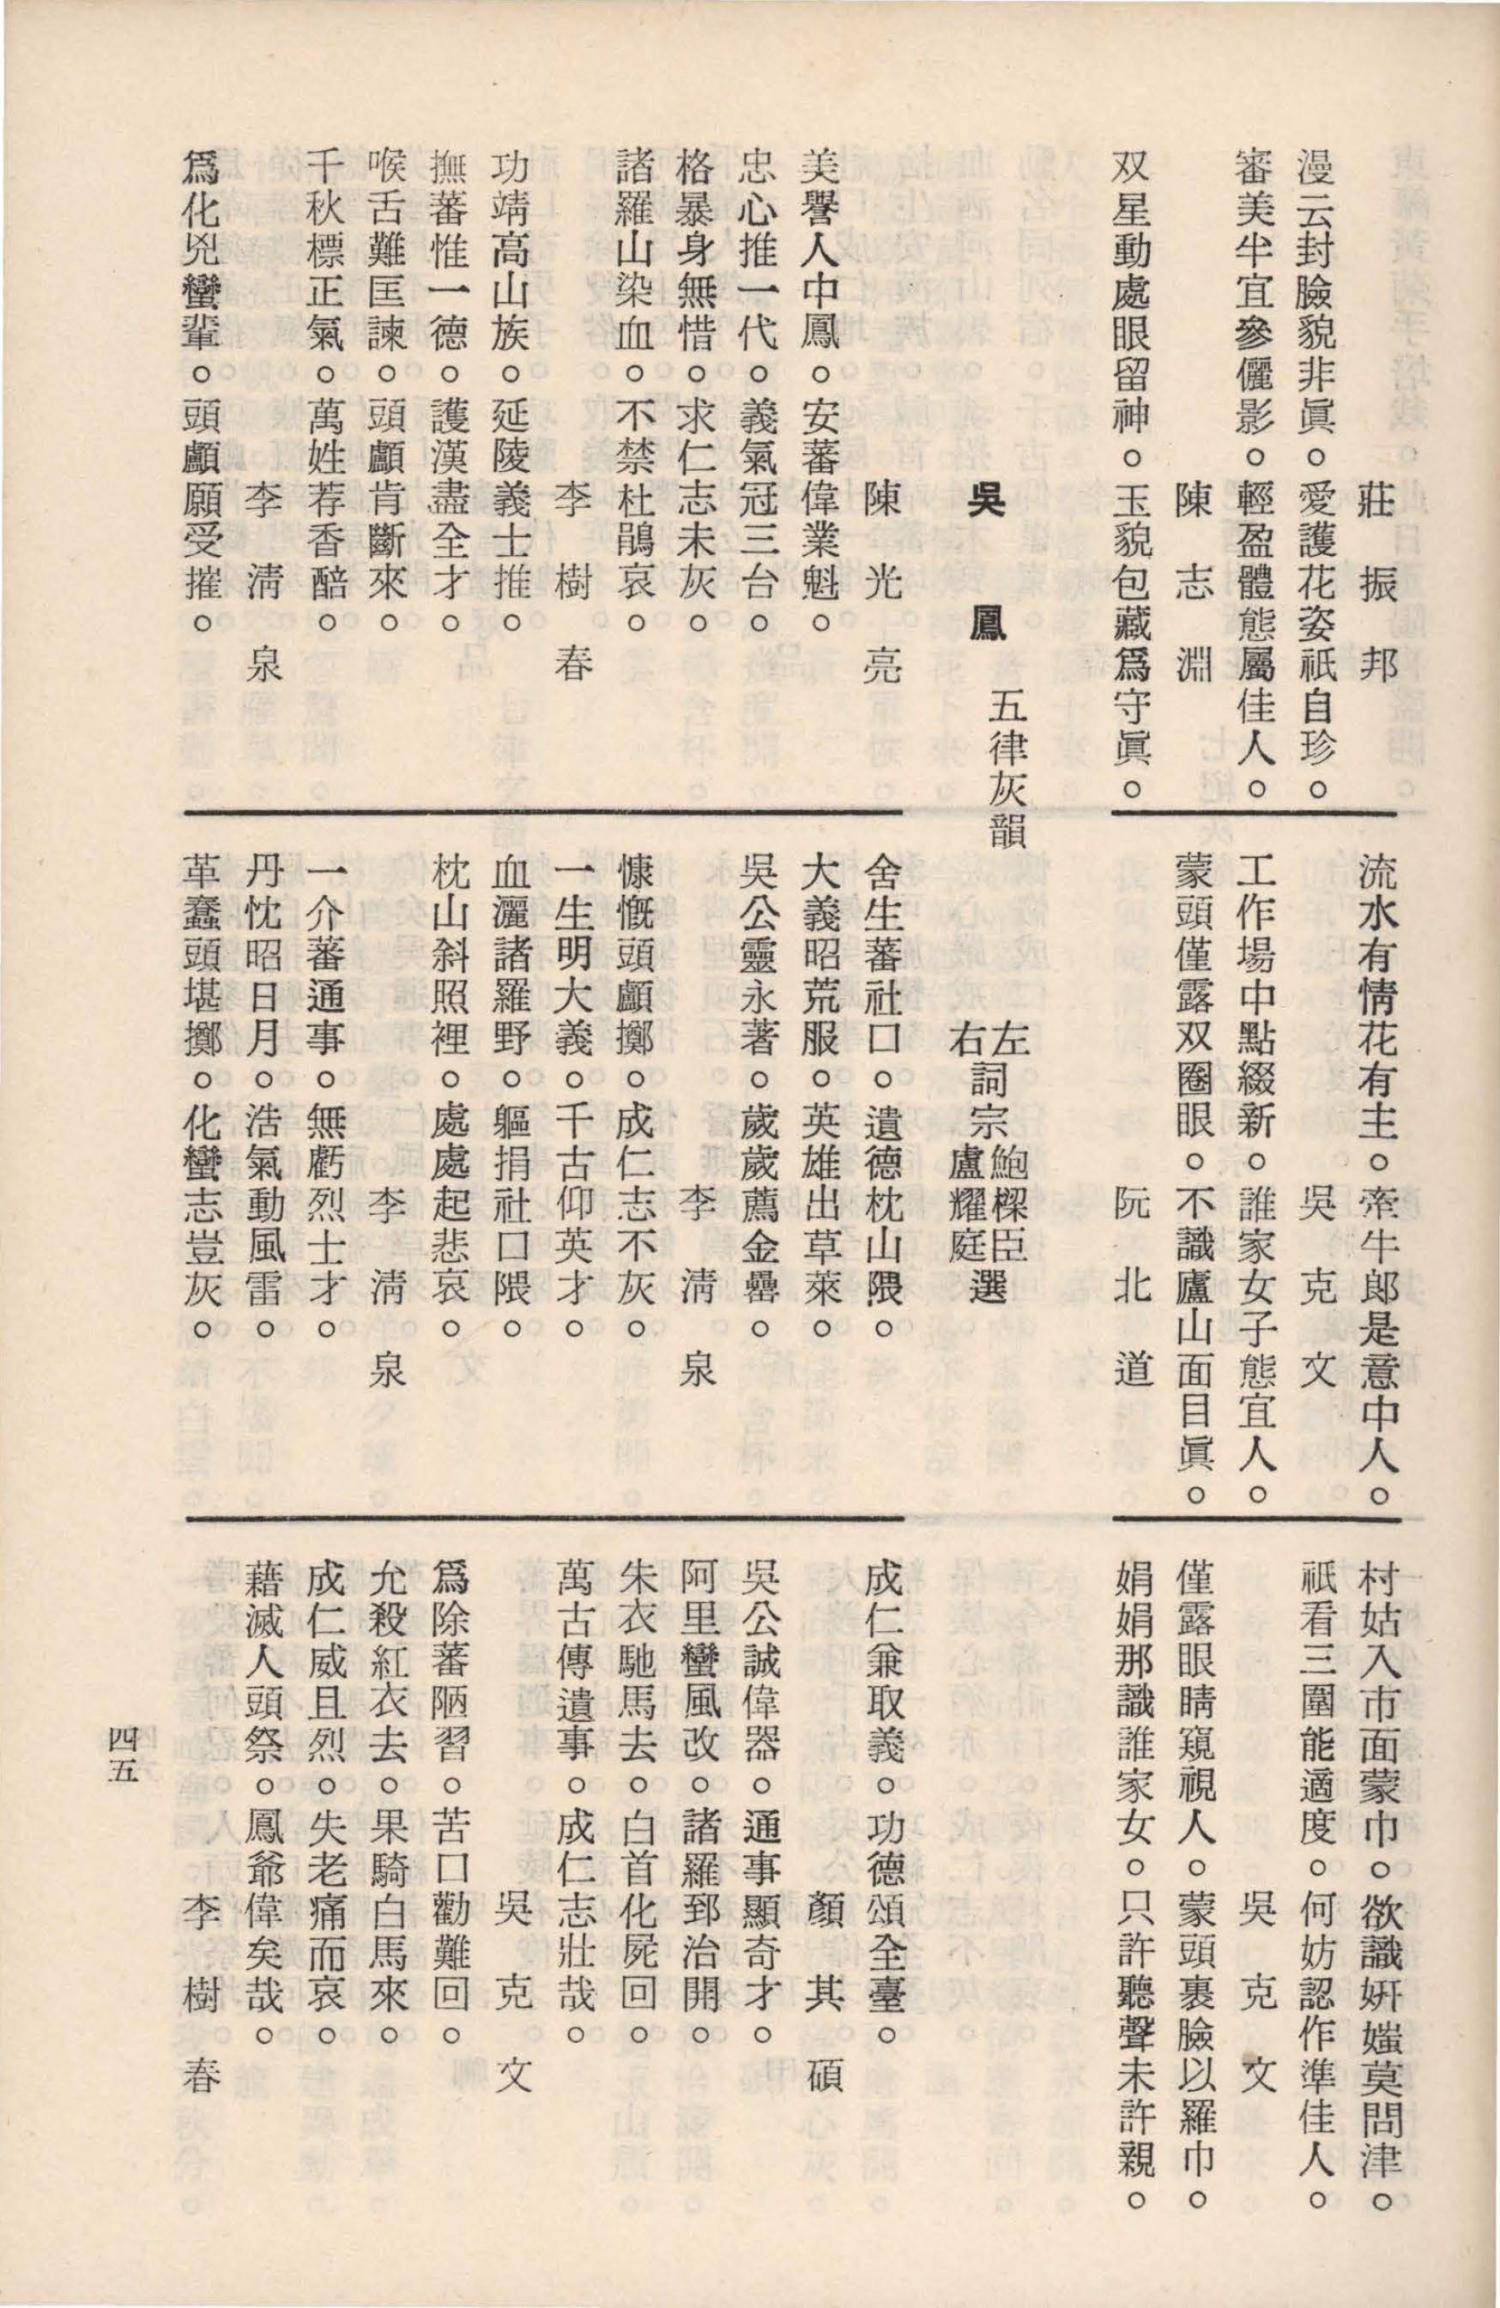 莊振邦
漫云封臉貌非眞。愛護花姿祇自珍。
審美半宜參儷影。輕盈體態屬佳人。
陳志淵
双星動處眼留神。玉貌包藏爲守眞。
流水有情花有主。牽牛郞是意中人。
吳克文
工作場中點綴新。誰家女子態宜人。
蒙頭僅露双圈眼。不識廬山面目眞。
阮北道
村姑入市面蒙巾。欲識姸媸莫問津。
祇看三圍能適度。何妨認作準佳人。
吳克文
僅露眼睛窺視人。蒙頭裹臉以羅巾。
娟娟那識誰家女。只許聽聲未許親。
吳鳳 五律灰韻
左詞宗鮑樑臣選
右詞宗盧耀庭選
陳光亮
美譽人中鳳。安蕃偉業魁。
忠心推一代。義氣冠三台。
格暴身無惜。求仁志未灰。
諸羅山染血。不禁杜鵑哀。
李樹春
功靖高山族。延陵義士推。
撫蕃惟一德。護漢盡全才。
喉舌難匡諫。頭顱肯斷來。
千秋標正氣。萬姓荐香醅。
李淸泉
爲化兇蠻輩。頭顱願受摧。
舍生蕃社口。遺德枕山隈。
大義昭荒服。英雄出草萊。
吳公靈永著。歲歲薦金罍。
李淸泉
慷慨頭顱擲。成仁志不灰。
一生明大義。千古仰英才。
血灑諸羅野。軀捐社口隈。
枕山斜照裡。處處起悲哀。
李淸泉
一介蕃通事。無虧烈士才。
丹忱昭日月。浩氣動風雷。
革蠢頭堪擲。化蠻志豈灰。
成仁兼取義。功德頌全臺。
顏其碩
吳公誠偉器。通事顯奇才。
阿里蠻風改。諸羅郅治開。
朱衣馳馬去。白首化屍回。
萬古傳遺事。成仁志壯哉。
吳克文
爲除蕃陋習。苦口勸難回。
允殺紅衣去。果騎白馬來。
成仁威且烈。失老痛而哀。
藉滅人頭祭。鳳爺偉矣哉。
李樹春
四五